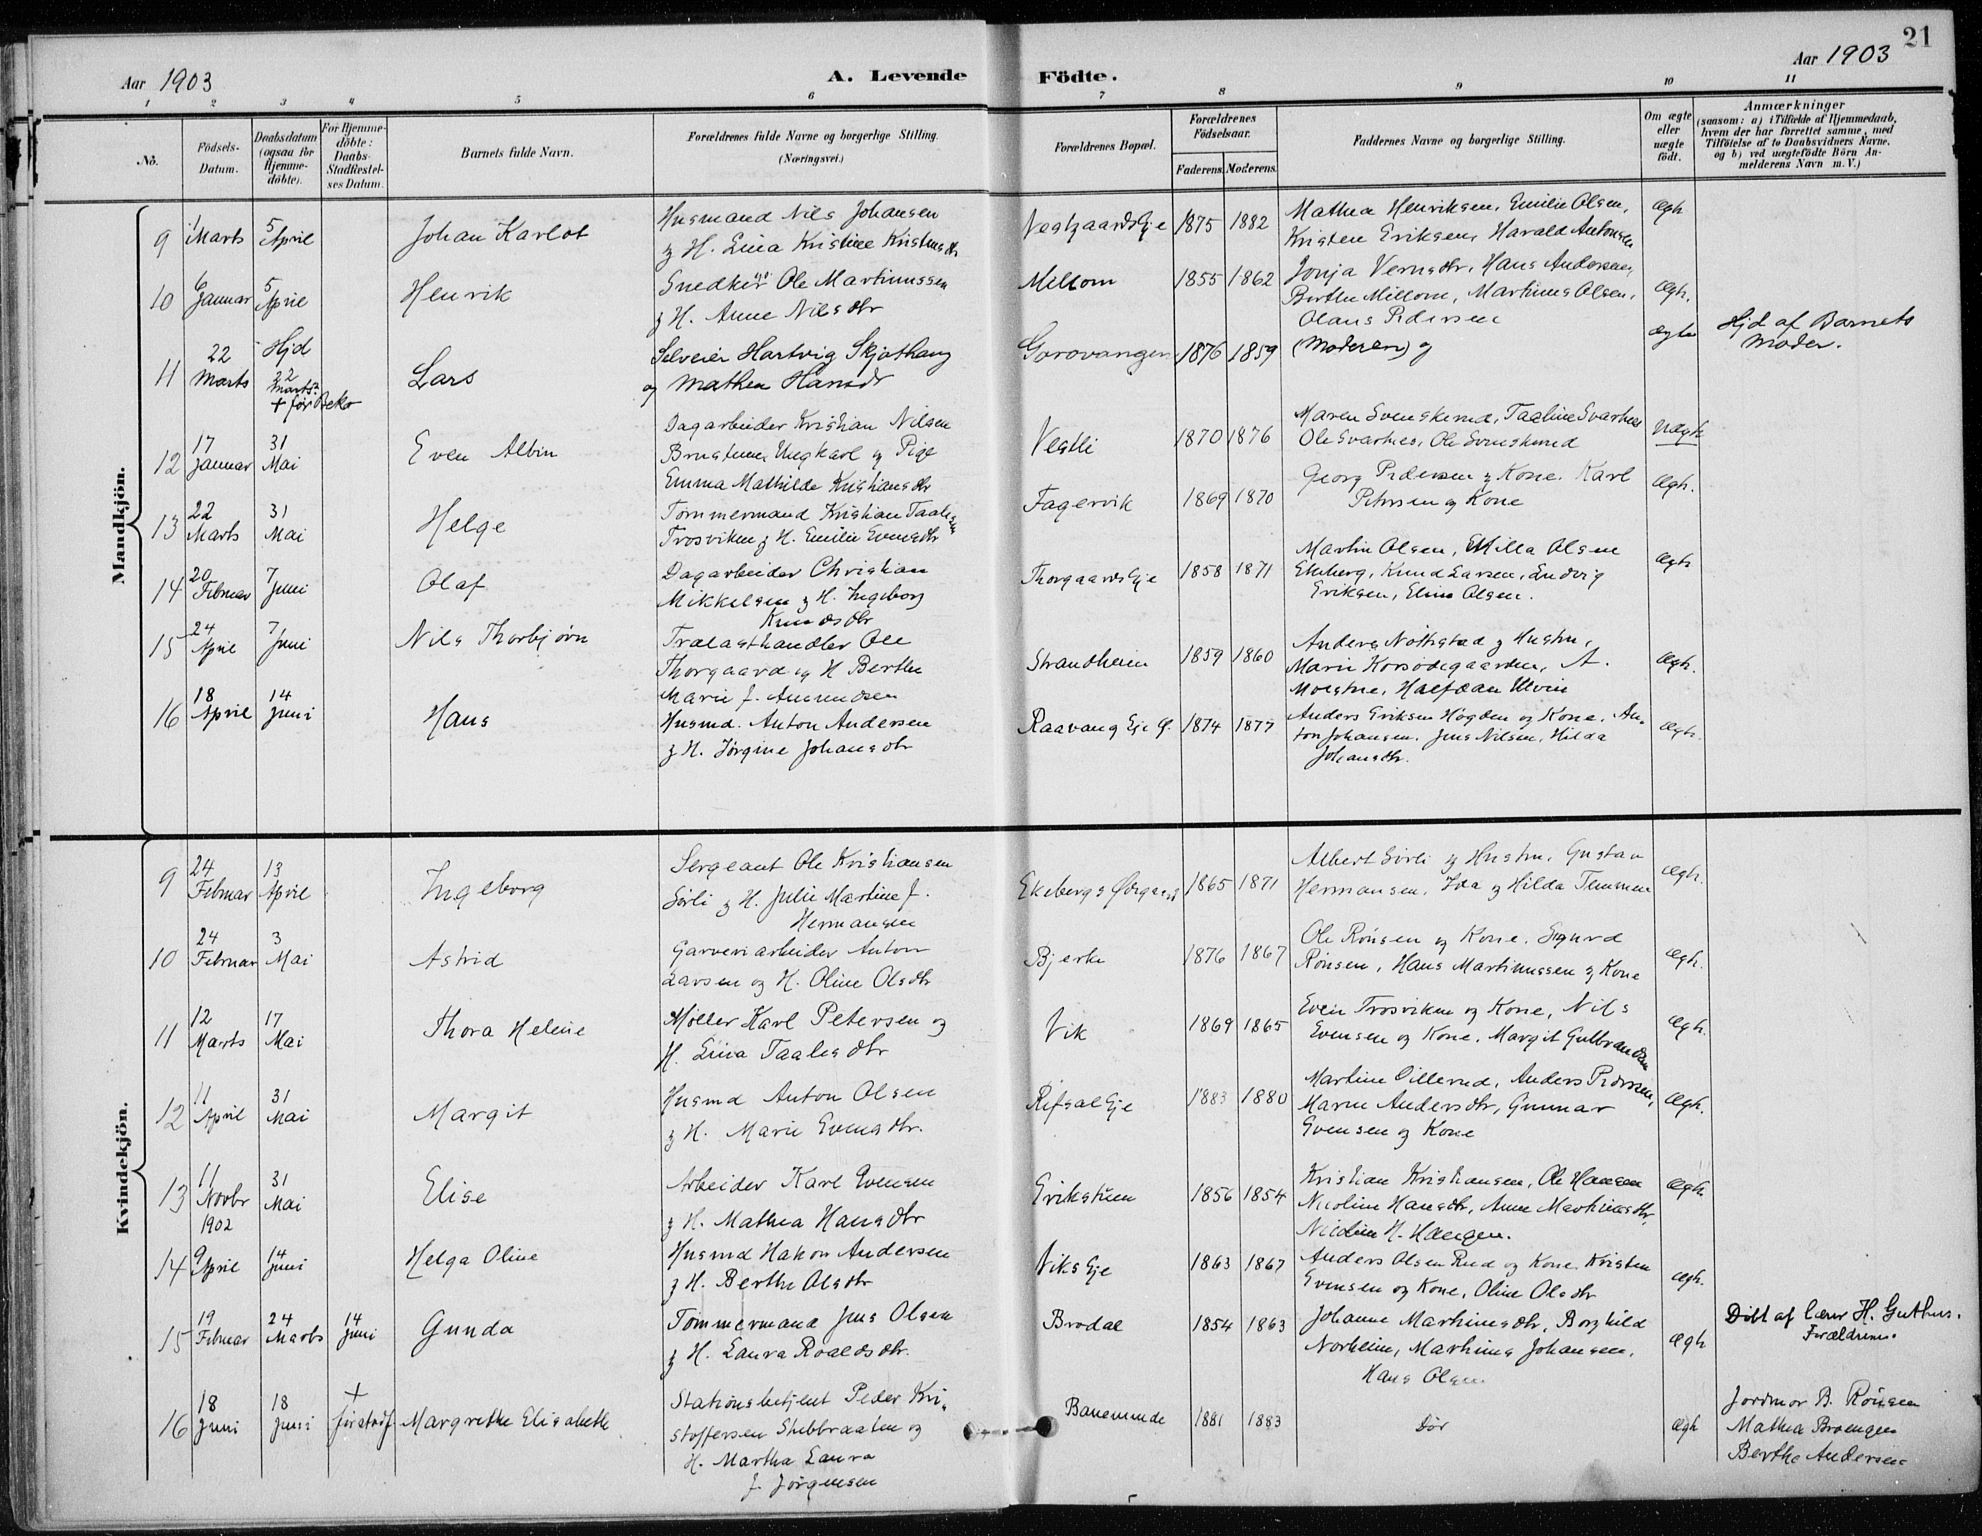 21
Aar 1903
A. Levende Födte.
Aar 1903
1 2 3 4 5 6 7 8 9 10 11
No.
Födsels-Datum.
Daabsdatum (ogsaa for Hjemme-döbte).
For Hjemme-döbte: Daabs-Stadfæstel-ses Datum.
Barnets fulde Navn.
Forældrenes fulde Navne og borgerlige Stilling.
(Næringsvei.)
Forældrenes Bopæl.
Forældrenes Födselsaar.
Faderens. Moderens.
Faddernes Navne og borgerlige Stilling.
Om ægte eller uægte födt.
Anmærkninger
(saasom: a) i Tilfælde af Hjemmedaab, hvem der har forrettet samme, med Tilföielse af to Daabsvidners Navne, og b) ved uægtefödte Börn An-melderens Navn m. V.)
Mandkjön.
9 1 Marts 5 April Johan Karlot
Husmand Nils Johansen
og H. Lina Kristine Kristensdtr
Vestgaards Eje 1875 1882
Mathea Henriksen, Emilie Olsen,
Kristen Eriksen, Harald Antonsen
Ægt.
10 6 Januar 5 April Henrik
Snedker Ole Martinussen
og H. Anne Nilsdtr
Millom 1855 1862
Hans Andersen,
Berthe Millom, Martinus Olsen,
Olaus Pedersen
Ægt.
11 22 Marts Hjd 22 Marts + før Bekr Lars
Selveier Hartvig Skjøthaug
og Mathea Hansdr
Gorovangen 1876 1859
(Moderen) og
ægte
Hjd af Barnets
Moder.
12 17 Januar 31 Mai Even Albin
Dagarbeider Kristian Nilsen
Ungkarl og Pige
Emma Mathilde Kristiansdtr
Vestli 1870 1876
Maren Svenskerud, Taaline Svarhus
Ole Svarhus, Ole Svenskerud
Uægt.
13 22 Marts 31 Mai Helge
Tømmermand Kristian Taalesen
Trosviken og H. Emilie Evensdtr
Fagervik 1869 1870
Georg Pedersen og Kone. Karl
Petersen og Kone
Ægt.
14 20 Februar 7 Juni Olaf
Dagarbeider Christian
Mikkelsen og H. Ingeborg
Knudsdtr
Thorgaards Eje 1858 1871
Martin Olsen, Milla Olsen
Ekeberg, Knud Larsen, Ludvig
Eriksen, Eline Olsen.
Ægt.
15 24 April 7 Juni Nils Thorbjørn
Trælasthandler Ole
Thorgaard og H Berthe
Marie f. Amundsen
Strandheim 1859 1860
Anders Nøttestad og Hustru,
Marie Korsødegaarden, A.
Moestue, Halfdan Ulvin
Ægt.
16 18 April 14 Juni Hans
Husmd. Anton Andersen
og H. Jørgine Johansdtr
Raavang Eje Ø. 1874 1877
Anders Eriksen Høgden og Kone. An-
ton Johansen. Jens Nilsen, Hilda
Johansdtr.
Ægt.
Kvindekjön.
9 24 Februar 13 April Ingeborg
Sergeant Ole Kristiansen
Sörli og H. Julie Martine f.
Hermansen
Ekebergs Øvregaard 1865 1871
Albert Sörli og Hustru, Gustav
Hermansen, Ida og Hilda Temmen
Ægt.
10 24 Februar 3 Mai Astrid
Garveriarbeider Anton
Larsen og H. Oline Olsdtr
Bjerke 1876 1867
Ole Rönsen og Kone. Sigurd
Rönsen, Hans Martinussen og Kone
Ægt.
11 12 Marts 17 Mai Thora Helene
Møller Karl Petersen og
H. Lina Taalesdtr
Vik 1869 1865
Even Trosviken og Kone, Nils
Evensen og Kone. Margit Gulbrandsen
Ægt.
12 11 April 31 Mai Margit
Husmd Anton Olsen
og H. Marie Evensdtr.
Rifsal Eje 1883 1880
Martine Dillerud, Anders Pedersen,
Maren Andersdtr, Gunnar
Evensen og Kone
Ægt.
13 11 Novbr 1902 31 Mai Elise
Arbeider Karl Evensen
og H. Mathea Hansdtr
Erikstuen 1856 1854
Kristian Kristiansen, Ole Hansen
Nicoline Hansdtr, Anne Martinusdtr,
Nicoline H. Haugen.
Ægt.
14 9 April 14 Juni Helga Oline
Husmd Hakon Andersen
og H. Berthe Olsdtr
Viks Eje 1863 1867
Anders Olsen Rud og Kone. Kristen
Evensen og Kone, Oline Olsdtr
Ægt.
15 19 Februar 24 Marts 14 Juni Gunda
Tömmermand Jens Olsen
og H. Laura Roaldsdtr.
Brodal 1854 1863
Johanne Martinusdtr, Borghild
Norheim, Martinus Johansen,
Hans Olsen
Ægt
Döbt af Lærer H. Guthus.
Forældrene.
16 18 Juni 18 Juni + før stadf. Margrethe Elisabeth
Stationsbetjent Peder Kri-
stoffersen Stubbraaten og
H. Martha Laura
f. Jørgensen
Baneminde 1881 1883
Dør
Ægt
Jordmor B. Rönsen
Mathea Braengen
Berthe Andersen